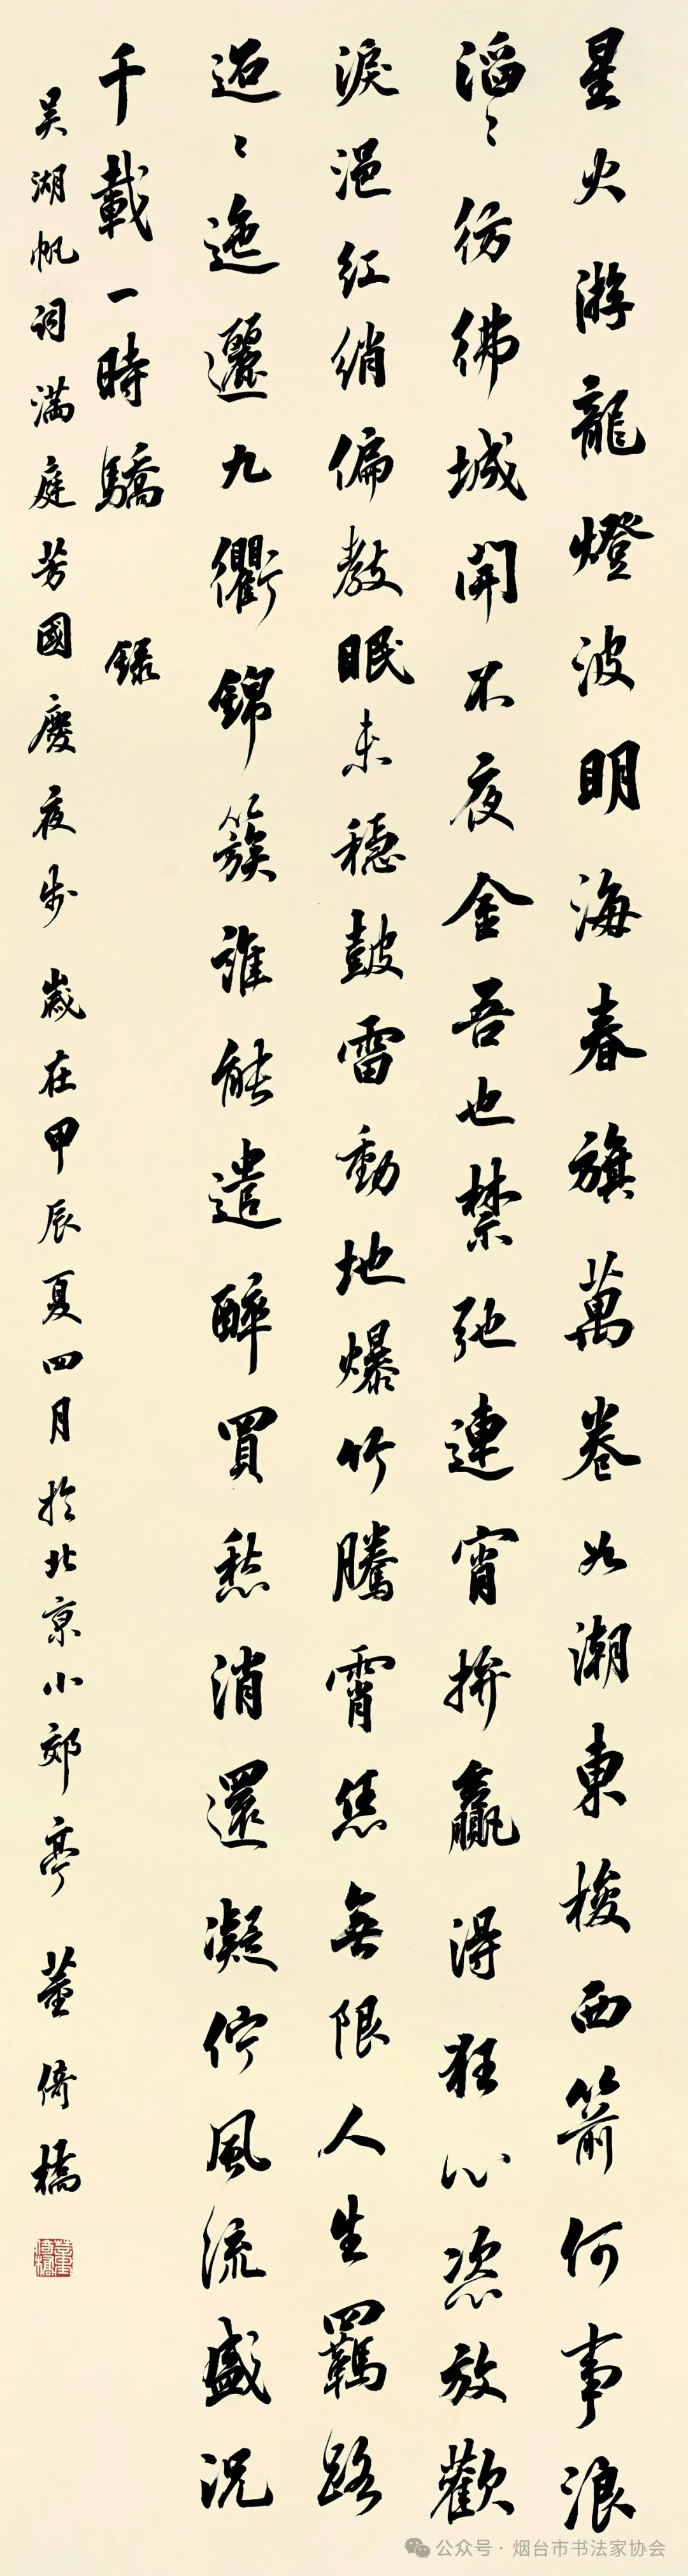 星火游龍燈波明海春旗萬卷如潮東梭西箭何事浪
滔〻彷彿城開不夜金吾也禁弛連宵拚贏得狂心恣放歡
淚浥紅綃偏教眠未穩鼓雷動地爆竹騰霄焦無限人生羈路
迢〻迤邐九衢錦簇誰能遣醉買愁消還凝佇風流盛況
千載一時驕 録
吴湖帆詞滿庭芳國慶夜步 歲在甲辰夏四月於北京小郊亭 董倚橋
公众号·烟台市书法家协会